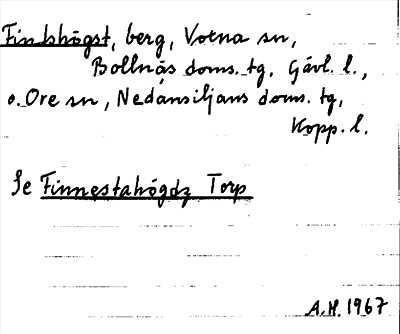 Finnhögst, berg, Votna sn,
Bollnäs doms. tg, Gävl. l.,
o. Ore sn, Nedansiljans doms. tg,
Kopp. l.
Se Finnestahögdz Torp
A.H. 1967